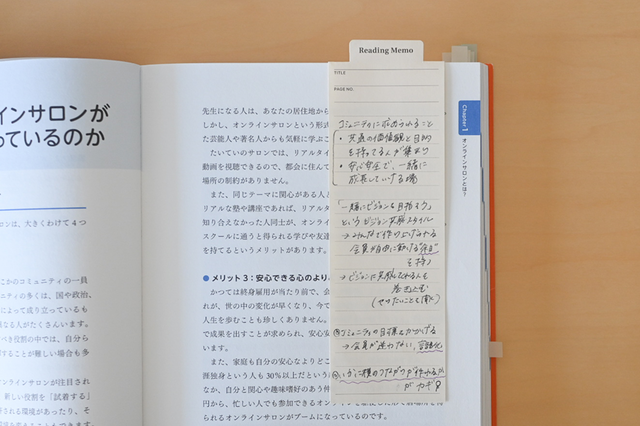 インサロンが
っているのか
ロンは、大きくわけて4つ
このコミュニティの一員
ニティの多くは、国や政治、
によって成り立っているも
なる人がたくさんいます。
べき役割の中では、自分ら
することが難しい場合も多
ンラインサロンが注目され
新しい役割を「試着する」
される環境があったり、そ
先生になる人は、あなたの居住地から
しかし、オンラインサロンという形式
た芸能人や著名人からも気軽に学ぶこ
たいていのサロンでは、リアルタイ
動画を視聴できるので、都会に住んて
場所の制約がありません。
また、同じテーマに関心がある人
リアルな塾や講座であれば、リアルタ
知り合えなかった人同士が、オンライ
スクールに通うと得られる学びや友達
を持てるというメリットがあります。
●メリット3:安心できる心のより
かつては終身雇用が当たり前で、会
れが、世の中の変化が早くなり、今で
人生を歩むことも珍しくありません。
で成果を出すことが求められ、安心安
います。
また、家庭も自分の安心なよりどこ
涯独身という人も30%以上だという
なか、自分と関心や趣味嗜好のあう仲
円から、忙しい人でも参加できるオン
られるオンラインサロンがブームになっているのです。
Reading Memo
TITLE
PAGE NO.
コミュニティに求められること
・共通の価値観と目的
を持ってる人が集まり
・安心安全で、一緒に
成長していける場
「一緒にビジョンを目指そう」
というビジョン実現スタイル
→みんなで作り上げられる
会員が自由に動ける"余白"
を持つ
→ビジョンに共感してくれる人を
巻き込む
(やりたいことも聞く)
コミュニティの目標をかかげる
→会員が迷わない、
いかに横のつながりが作れるか
がカギ
Chapter 1
オンラインサロンとは?